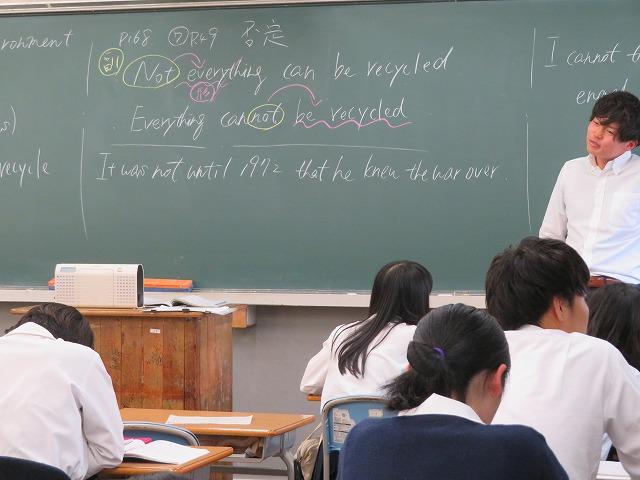 ronment
s)
recycle
P.168 ㋐P.49 否定
副 Not everything can be recycled
Everything cannot be recycled
It was not until 1992 that he knew the war over.
I cannot